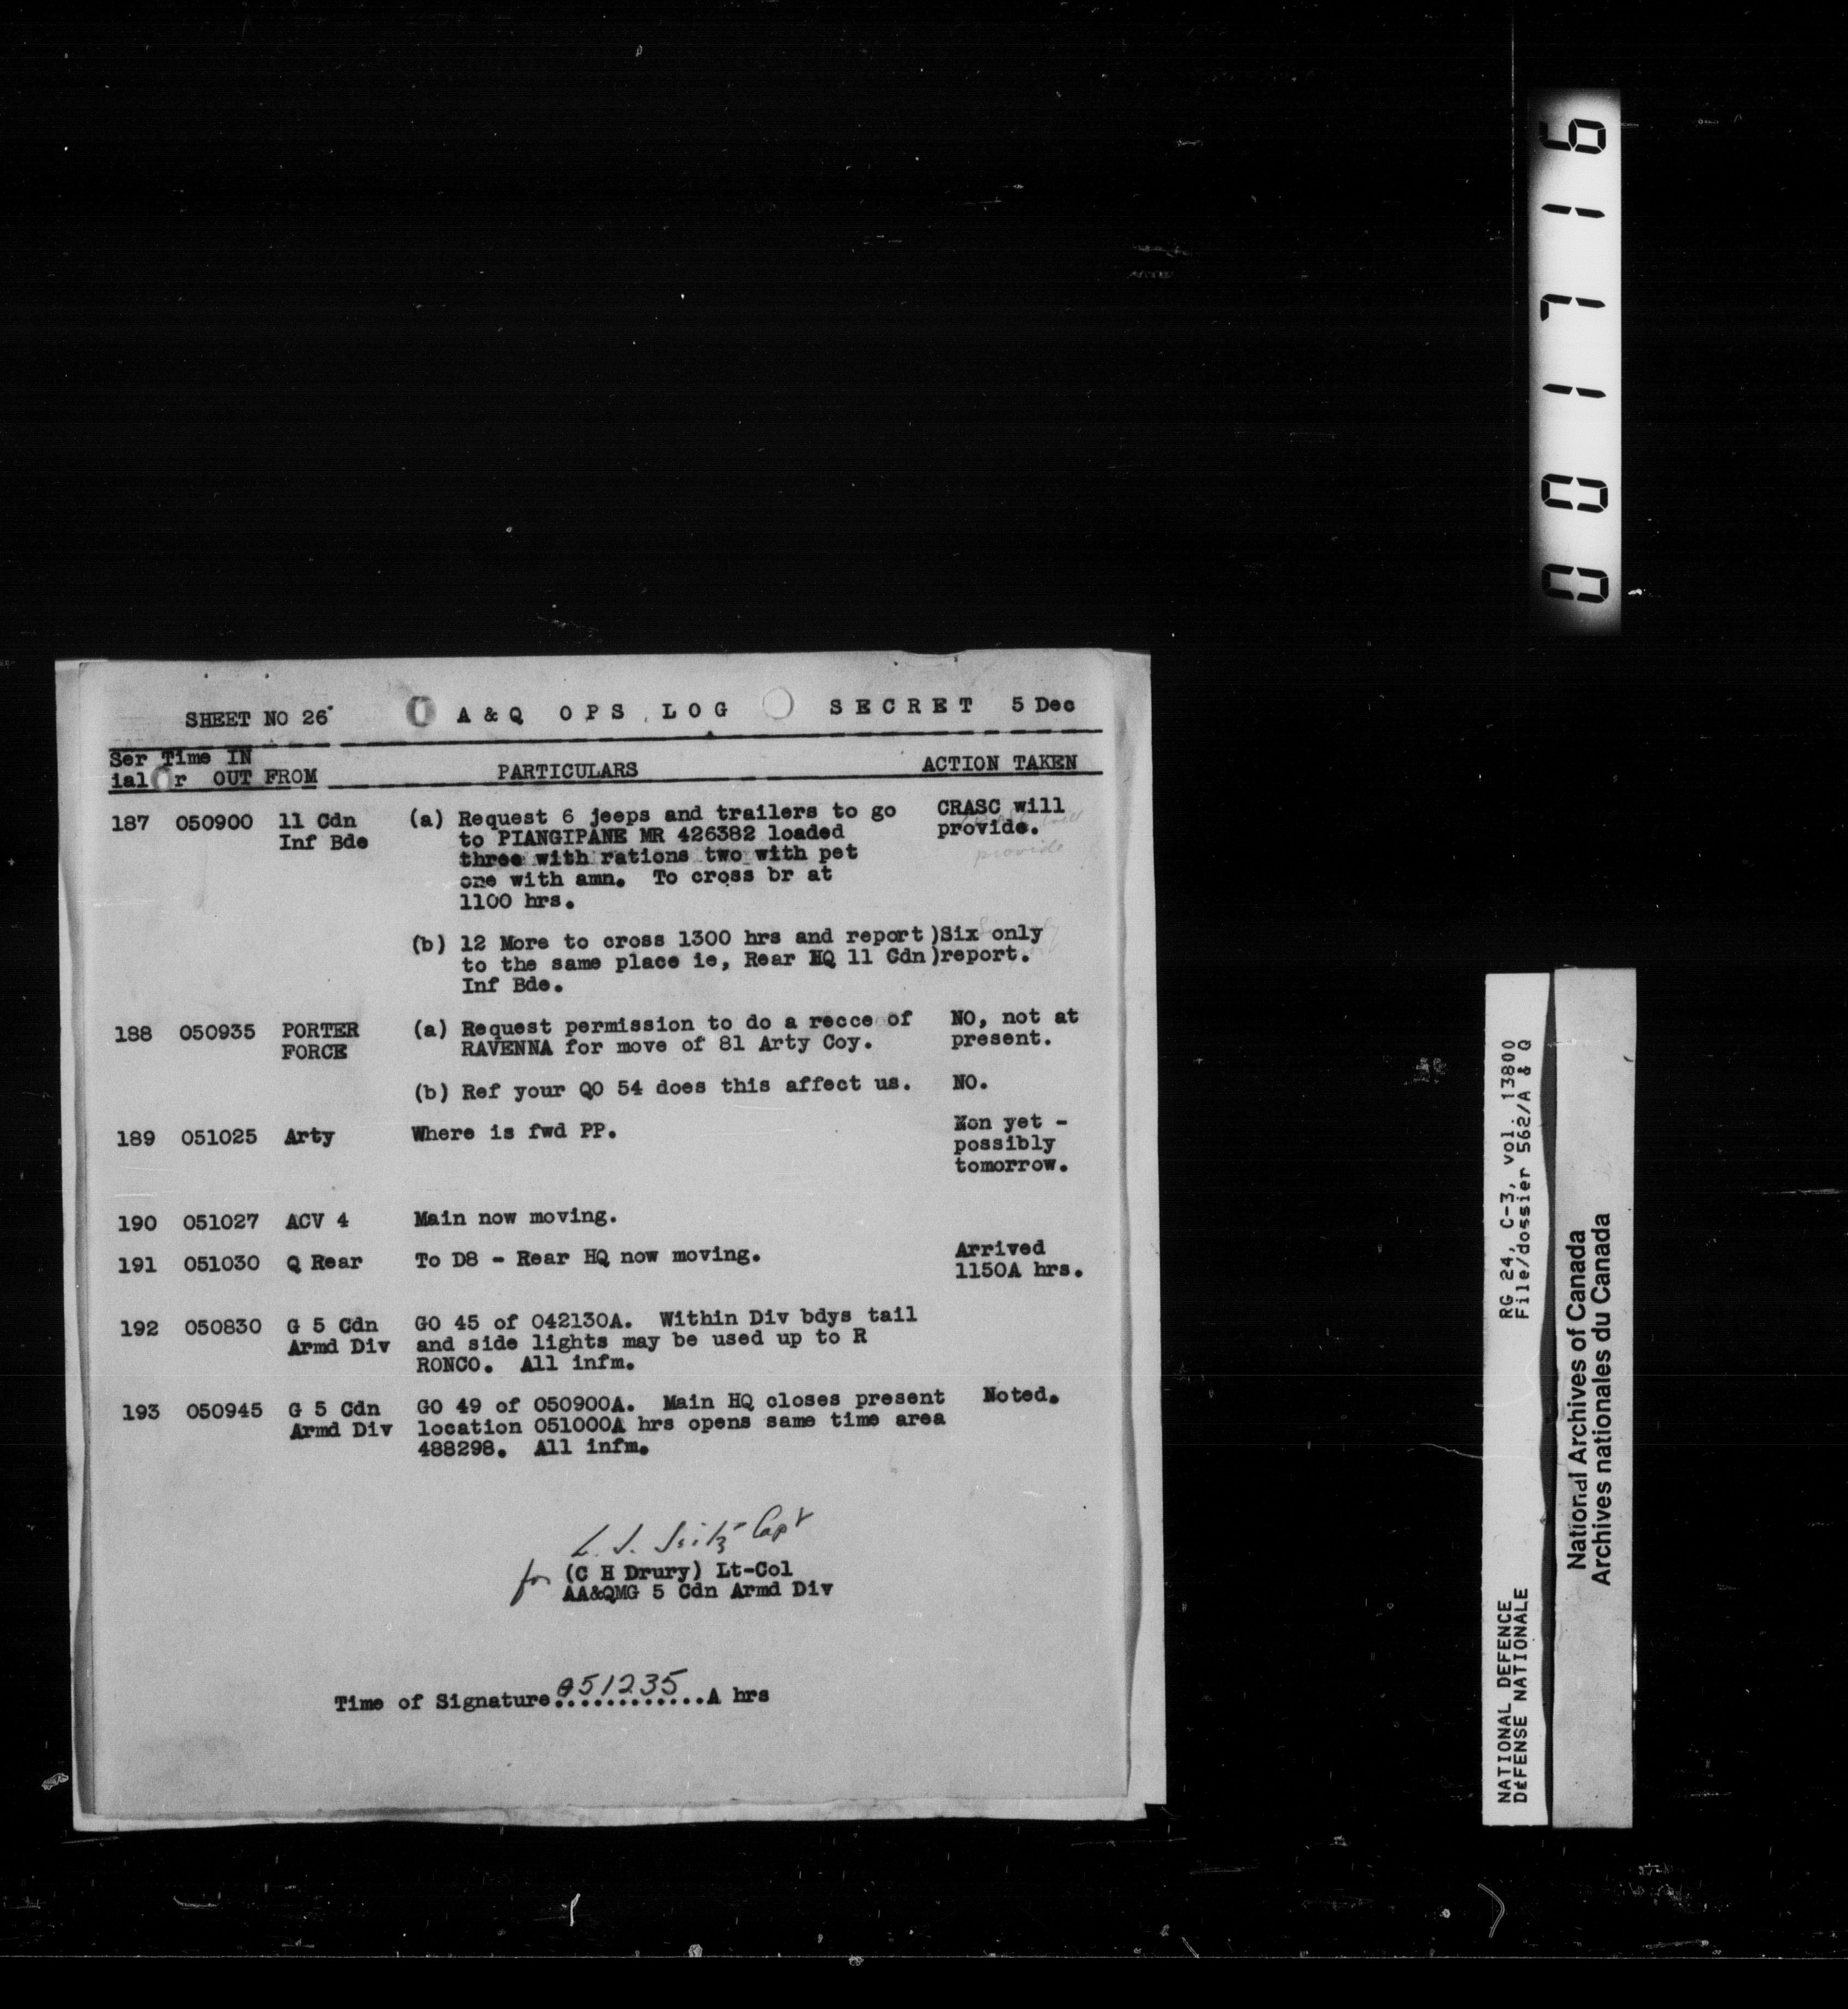 SHEET NO 26 A & Q OPS LOG SECRET 5 Dec
Ser Time IN
ial Or OUT FROM PARTICULARS ACTION TAKEN
187 050900 11 Cdn Inf Bde (a) Request 6 jeeps and trailers to go CRASC will
to PIANGIPANE MR 426382 loaded provide.
three with rations two with pet
one with amn. To cross br at
1100 hrs.
(b) 12 More to cross 1300 hrs and report )Six only
to the same place ie, Rear HQ 11 Cdn )report.
Inf Bde.
188 050935 PORTER FORCE (a) Request permission to do a recce of NO, not at
RAVENNA for move of 81 Arty Coy. present.
(b) Ref your QO 54 does this affect us. NO.
189 051025 Arty Where is fwd PP. Non yet -
possibly
tomorrow.
190 051027 ACV 4 Main now moving.
191 051030 Q Rear To D8 - Rear HQ now moving. Arrived
1150A hrs.
192 050830 G 5 Cdn GO 45 of 042130A. Within Div bdys tail
Armd Div and side lights may be used up to R
RONCO. All infm.
193 050945 G 5 Cdn GO 49 of 050900A. Main HQ closes present Noted.
Armd Div location 051000A hrs opens same time area
488298. All infm.
Capt
for (C H Drury) Lt-Col
AA&QMG 5 Cdn Armd Div
Time of Signature 051235 A hrs
001716
RG 24, C-3, vol. 13800
File/dossier 562/A & Q
NATIONAL DEFENCE
DEFENSE NATIONALE
National Archives of Canada
Archives nationales du Canada